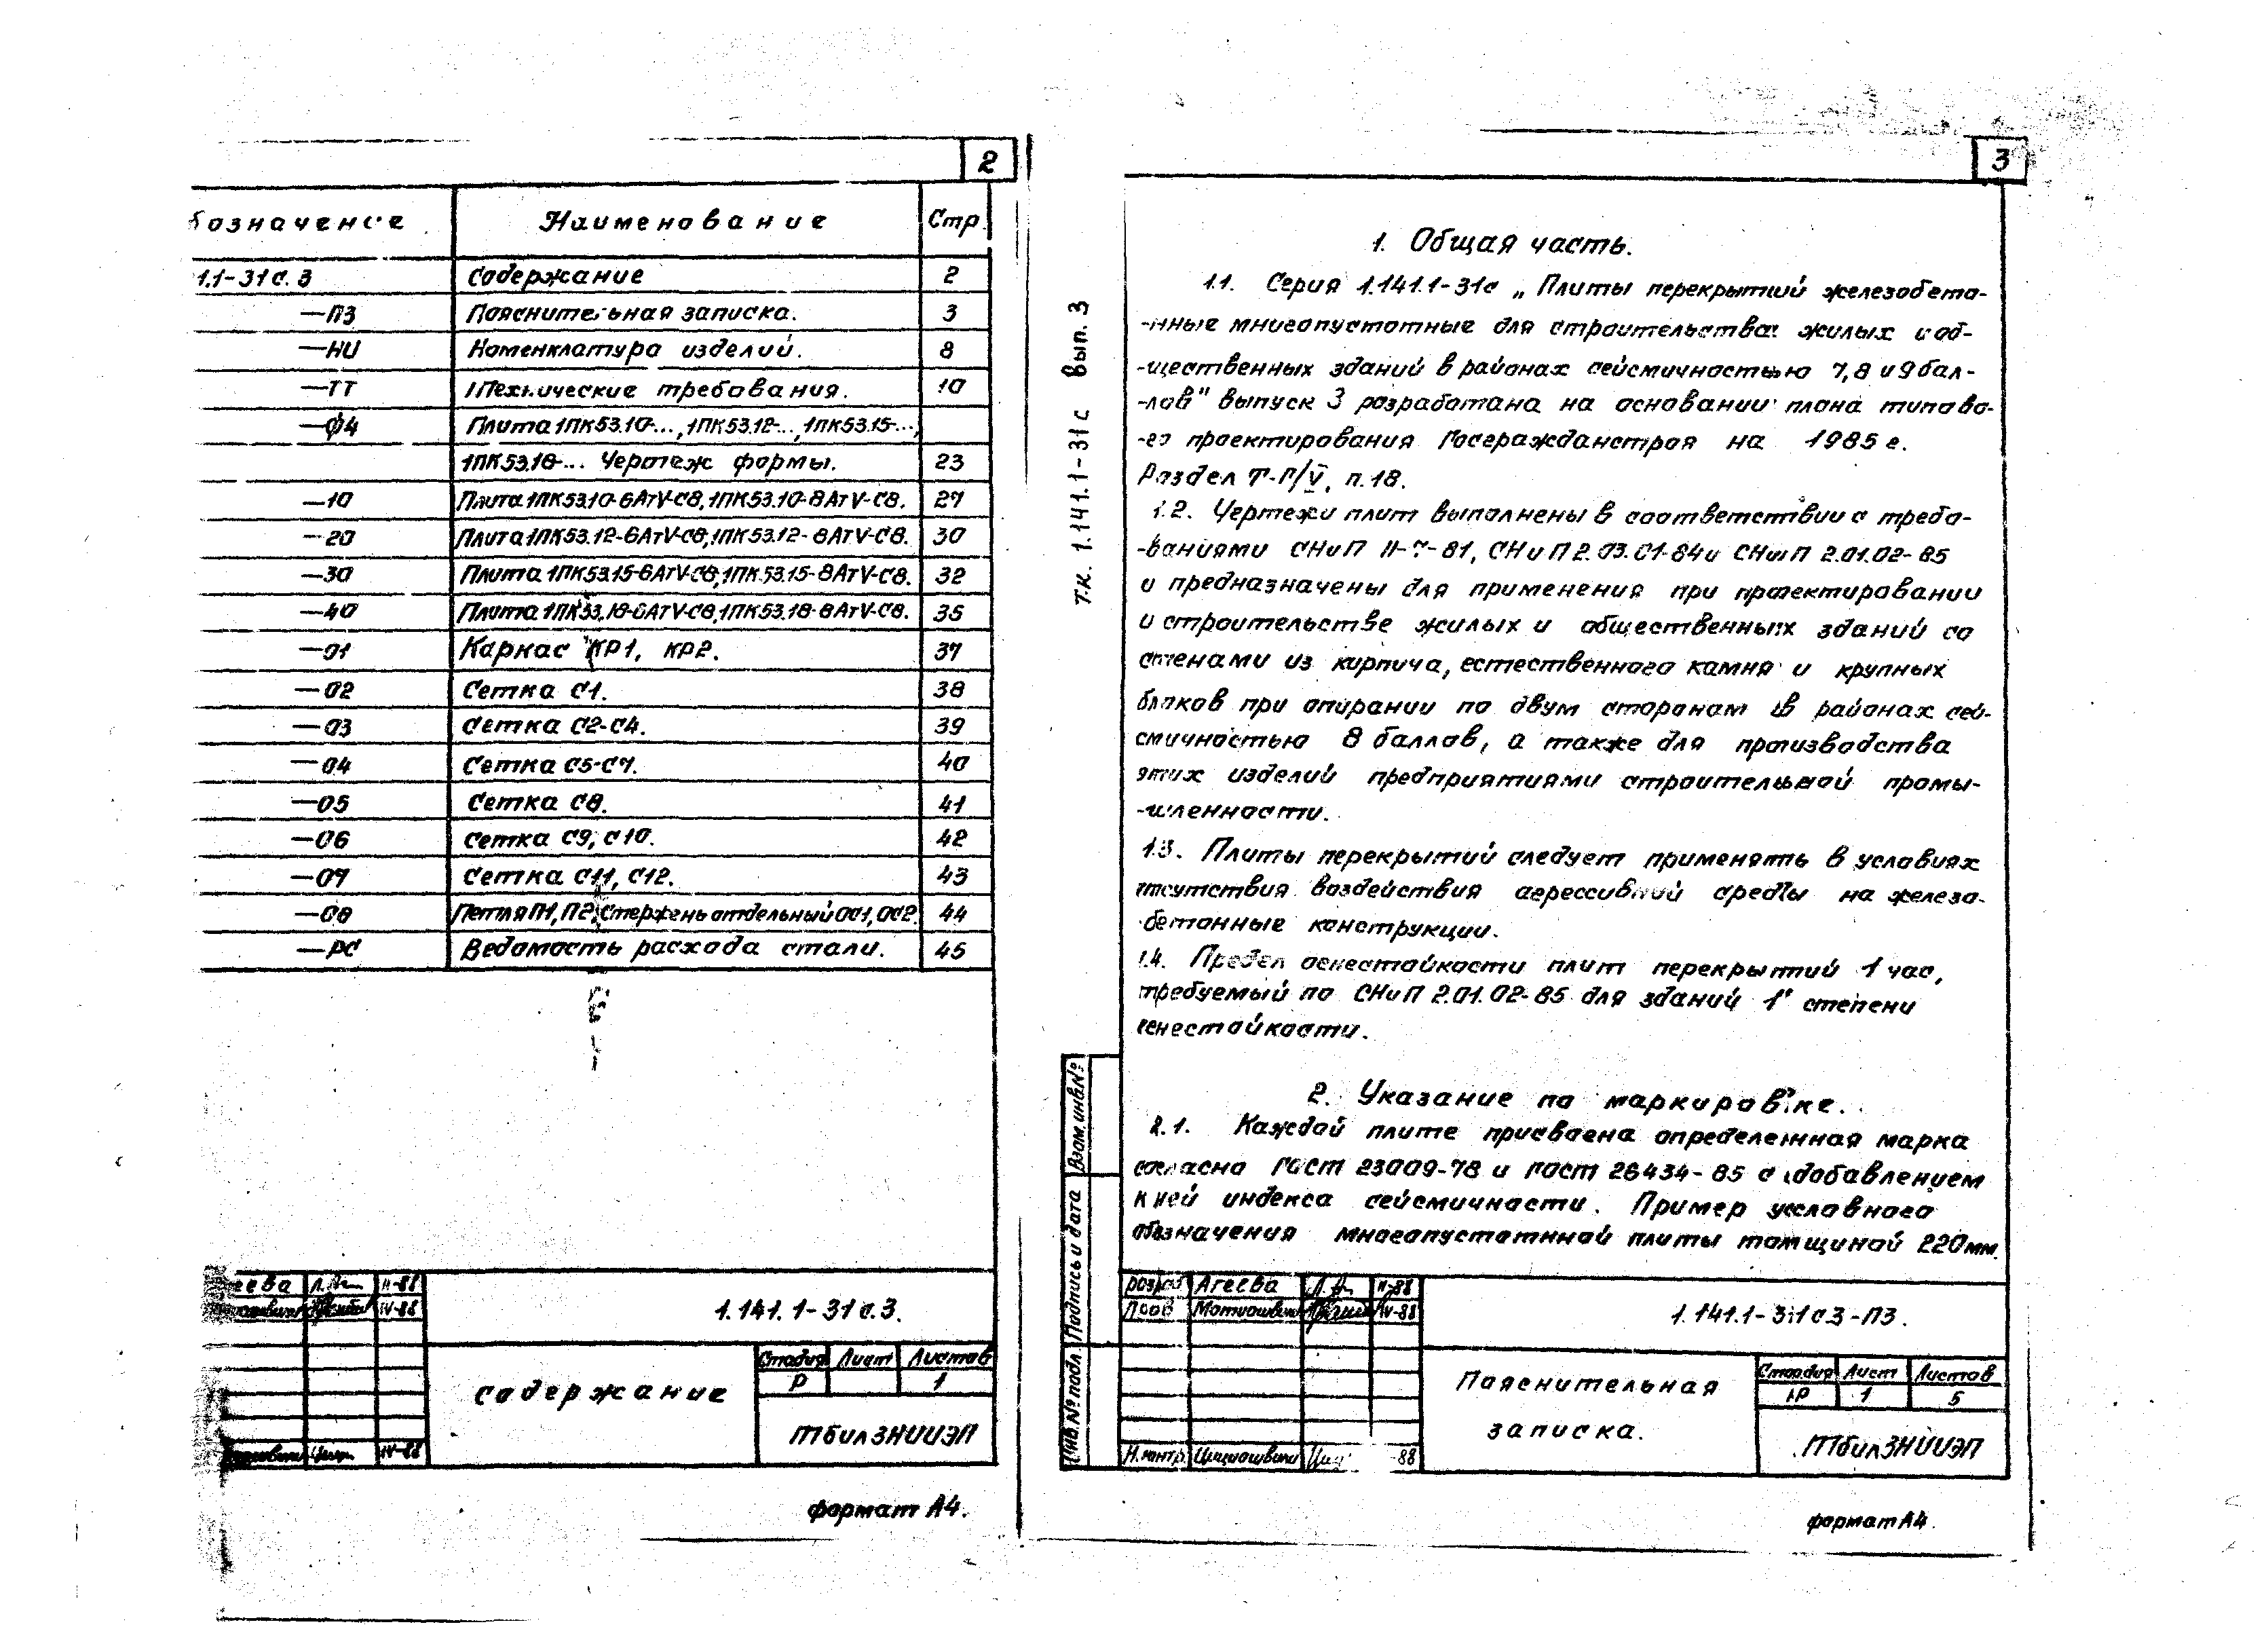 2
бозначение Наименование Стр.
1.1-31с.3 Содержание 2
—ПЗ Пояснительная записка. 3
—НИ Номенклатура изделий. 8
—ТТ Технические требования. 10
—Ф4 Плита 1ПК53.10-..., 1ПК53.12-..., 1ПК53.15-...,
1ПК53.18-... Чертеж формы. 23
—10 Плита 1ПК53.10-6АтV-С8, 1ПК53.10-8АтV-С8. 27
—20 Плита 1ПК53.12-6АтV-С8, 1ПК53.12-8АтV-С8. 30
—30 Плита 1ПК53.15-6АтV-С8, 1ПК.53.15-8АтV-С8. 32
—40 Плита 1ПК53.18-6АтV-С8, 1ПК53.18-8АтV-С8. 35
—01 Каркас КР1, КР2. 37
—02 Сетка С1. 38
—03 Сетка С2-С4. 39
—04 Сетка С5-С7. 40
—05 Сетка С8. 41
—06 Сетка С9, С10. 42
—07 Сетка С11, С12. 43
—08 Петля П1, П2, Стержень отдельный ОС1, ОС2. 44
—РС Ведомость расхода стали. 45
еева II-88
IV-88
1.141.1-31с.3.
содержание
Стадия Лист Листов
Р 1
ТбилЗНИИЭП
IV-88
формат А4.
3
т.к. 1.141.1-31с вып. 3
1. Общая часть.
1.1. Серия 1.141.1-31с „Плиты перекрытий железобето-
-нные многопустотные для строительства жилых и об-
-щественных зданий в районах сейсмичностью 7,8 и 9 бал-
-лов" выпуск 3 разработана на основании плана типово-
-го проектирования Госгражданстроя на 1985 г.
Раздел Т-П/V, п.18.
1.2. Чертежи плит выполнены в соответствии с требо-
-ваниями СНиП II-7-81, СНиП 2.03.01-84 и СНиП 2.01.02-85
и предназначены для применения при проектировании
и строительстве жилых и общественных зданий со
стенами из кирпича, естественного камня и крупных
блоков при опирании по двум сторонам в районах сей-
смичностью 8 баллов, а также для производства
этих изделий предприятиями строительной промы-
-шленности.
1.3. Плиты перекрытий следует применять в условиях
отсутствия воздействия агрессивной среды на железо-
-бетонные конструкции.
1.4. Предел огнестойкости плит перекрытий 1 час,
требуемый по СНиП 2.01.02-85 для зданий 1 степени
огнестойкости.
2. Указание по маркировке.
2.1. Каждой плите присвоена определенная марка
согласно ГОСТ 23009-78 и ГОСТ 26434-85 с добавлением
к ней индекса сейсмичности. Пример условного
обозначения многопустотнной плиты толщиной 220мм.
Взам.инв.№
Подпись и дата
Инв.№ подл.
разраб Агеева II-88
Пров Матиашвили IV-88
Н.контр. Цициашвили 88
1.141.1-31с.3-ПЗ.
Пояснительная
записка.
Стадия Лист Листов
Р 1 5
ТбилЗНИИЭП
формат А4.